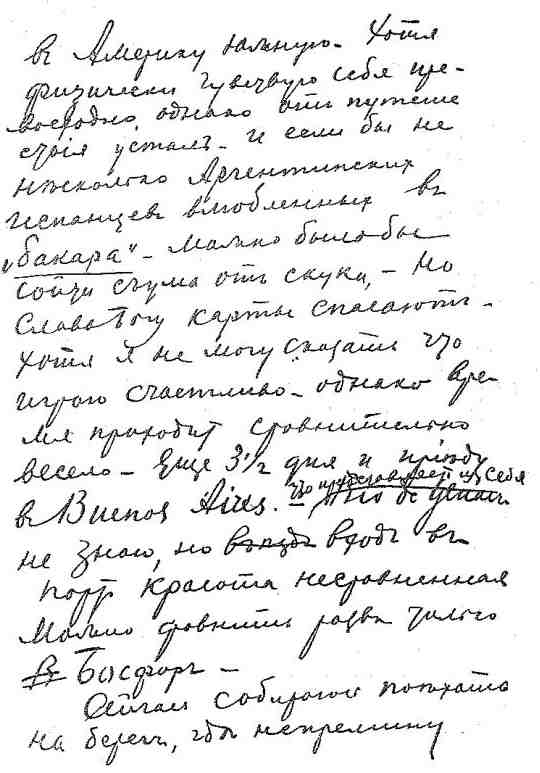 въ Америку южную. Хотя
физически чувствую себя пре-
восходно, однако отъ путеше
ствія усталъ. И если бы не
нѣсколько Аргентинскихъ
испанцевъ влюбленныхъ въ
„бакара" – можно было бы
сойти съума отъ скуки, – Но
слава Богу карты спасаютъ –
хотя я не могу сказать что
играю счастливо – однако вре-
мя проходитъ сравнительно
весело – Еще 3½ дня и приѣду
въ Buenos Aires. – что представляетъ изъ себя
не знаю, но въѣздъ входъ въ
портъ красота несравненная
Можно сравнить развѣ только
въ Босфоръ –
Сейчасъ собираюсь поѣхать
на берегъ, гдѣ непремѣнну